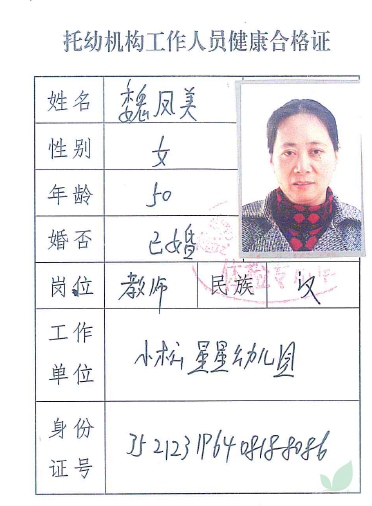 托幼机构工作人员健康合格证
姓名 魏凤美
性别 女
年龄 50
婚否 已婚
岗位 教师 民族 汉
工作单位 小松星星幼儿园
身份证号 352123196408188086